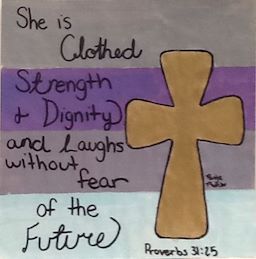 She is
Clothed
Strength
& Dignity
and Laughs
without
fear
of the
Future
Proverbs 31:25